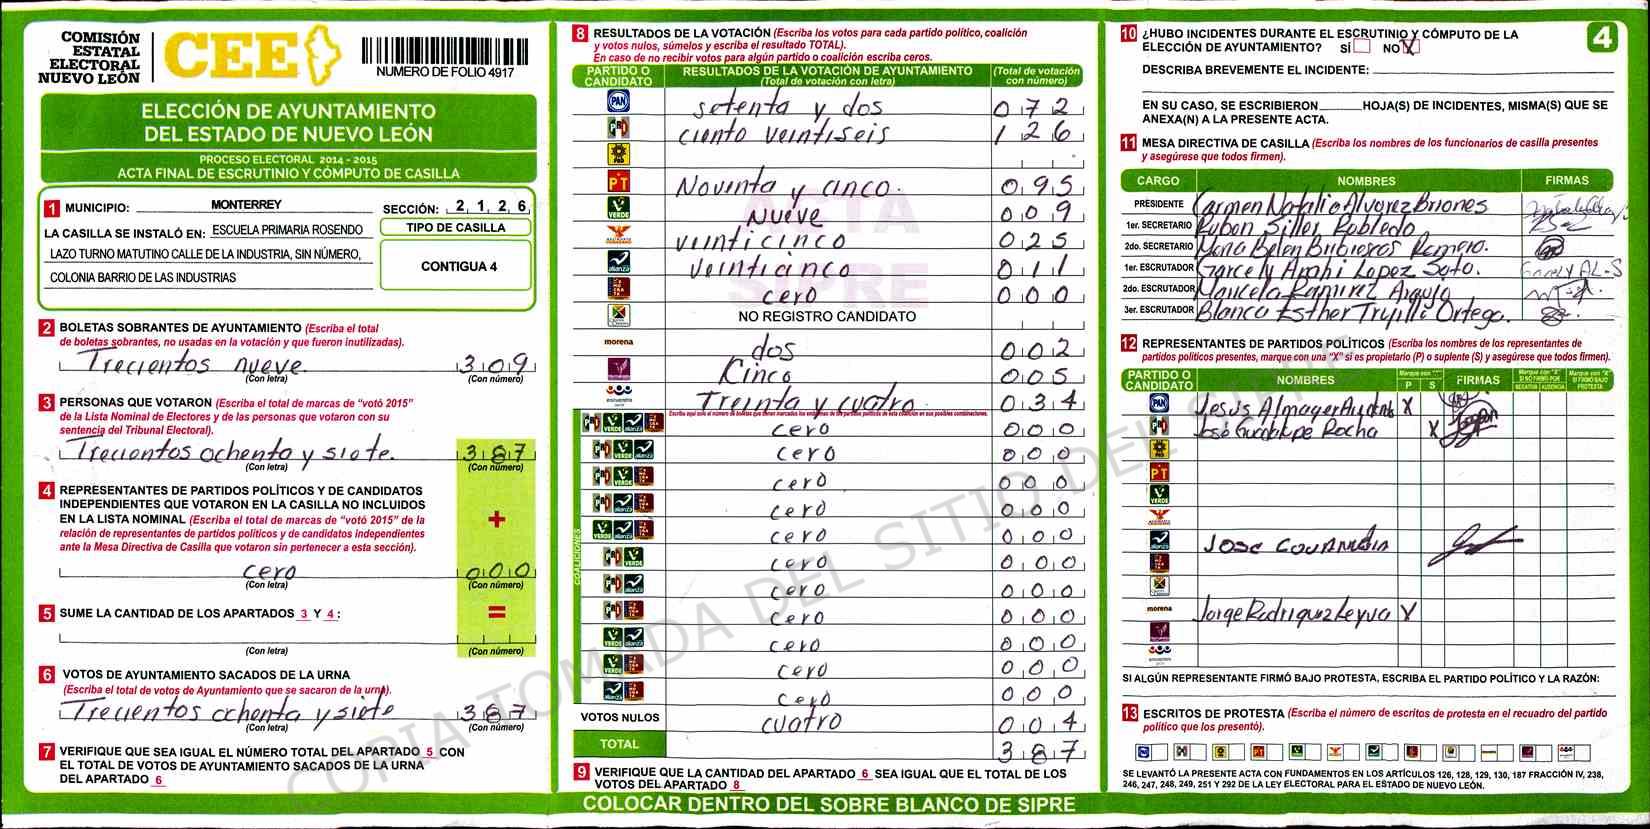 COMISIÓN
ESTATAL
ELECTORAL
NUEVO LEÓN
CEE
NUMERO DE FOLIO 4917
ELECCIÓN DE AYUNTAMIENTO
DEL ESTADO DE NUEVO LEÓN
PROCESO ELECTORAL 2014 - 2015
ACTA FINAL DE ESCRUTINIO Y CÓMPUTO DE CASILLA
1 MUNICIPIO: MONTERREY SECCIÓN: 2 1 2 6
LA CASILLA SE INSTALÓ EN: ESCUELA PRIMARIA ROSENDO
LAZO TURNO MATUTINO CALLE DE LA INDUSTRIA, SIN NÚMERO,
COLONIA BARRIO DE LAS INDUSTRIAS
TIPO DE CASILLA
CONTIGUA 4
2 BOLETAS SOBRANTES DE AYUNTAMIENTO (Escriba el total
de boletas sobrantes, no usadas en la votación y que fueron inutilizadas).
Trecientos nueve 309
(Con letra) (Con número)
3 PERSONAS QUE VOTARON (Escriba el total de marcas de "votó 2015"
de la Lista Nominal de Electores y de las personas que votaron con su
sentencia del Tribunal Electoral).
Trecientos ochenta y siete. 387
(Con letra) (Con número)
4 REPRESENTANTES DE PARTIDOS POLÍTICOS Y DE CANDIDATOS
INDEPENDIENTES QUE VOTARON EN LA CASILLA NO INCLUIDOS
EN LA LISTA NOMINAL (Escriba el total de marcas de "votó 2015" de la
relación de representantes de partidos políticos y de candidatos independientes
ante la Mesa Directiva de Casilla que votaron sin pertenecer a esta sección).
+
cero 000
(Con letra) (Con número)
5 SUME LA CANTIDAD DE LOS APARTADOS 3 Y 4:
=
(Con letra) (Con número)
6 VOTOS DE AYUNTAMIENTO SACADOS DE LA URNA
(Escriba el total de votos de Ayuntamiento que se sacaron de la urna).
Trecientos ochenta y siete 387
(Con letra) (Con número)
7 VERIFIQUE QUE SEA IGUAL EL NÚMERO TOTAL DEL APARTADO 5 CON
EL TOTAL DE VOTOS DE AYUNTAMIENTO SACADOS DE LA URNA
DEL APARTADO 6
8 RESULTADOS DE LA VOTACIÓN (Escriba los votos para cada partido político, coalición
y votos nulos, súmelos y escriba el resultado TOTAL).
En caso de no recibir votos para algún partido o coalición escriba ceros.
PARTIDO O CANDIDATO
RESULTADOS DE LA VOTACIÓN DE AYUNTAMIENTO
(Total de votación con letra)
(Total de votación con número)
PAN setenta y dos 072
PRI ciento veintiseis 126
PRD
PT Noventa y cinco. 095
VERDE Nueve 009
veinticinco 025
alianza veinticinco 011
cero 000
NO REGISTRO CANDIDATO
morena dos 002
Cinco 005
encuentro Treinta y cuatro 034
Escriba aquí solo el número de boletas que tienen marcados los emblemas de los partidos políticos de esta coalición en sus posibles combinaciones.
COALICIONES
PRI VERDE alianza cero 000
PRI VERDE alianza cero 000
PRI VERDE cero 000
PRI alianza cero 000
VERDE alianza cero 000
PRI VERDE cero 000
PRI alianza cero 000
PRI cero 000
VERDE alianza cero 000
VERDE cero 000
alianza cero 000
VOTOS NULOS cuatro 004
TOTAL 387
9 VERIFIQUE QUE LA CANTIDAD DEL APARTADO 6 SEA IGUAL QUE EL TOTAL DE LOS
VOTOS DEL APARTADO 8
ACTA
SIPRE
COPIA TOMADA DEL SITIO DEL SIPRE
COLOCAR DENTRO DEL SOBRE BLANCO DE SIPRE
10 ¿HUBO INCIDENTES DURANTE EL ESCRUTINIO Y CÓMPUTO DE LA
ELECCIÓN DE AYUNTAMIENTO? SÍ NO X
4
DESCRIBA BREVEMENTE EL INCIDENTE:
EN SU CASO, SE ESCRIBIERON HOJA(S) DE INCIDENTES, MISMA(S) QUE SE
ANEXA(N) A LA PRESENTE ACTA.
11 MESA DIRECTIVA DE CASILLA (Escriba los nombres de los funcionarios de casilla presentes
y asegúrese que todos firmen).
CARGO NOMBRES FIRMAS
PRESIDENTE Carmen Natalia Alvarez Briones
1er. SECRETARIO Ruben Siller Robledo
2do. SECRETARIO Maria Belen Bribiescas Romero.
1er. ESCRUTADOR Garcely Arahi Lopez Soto.
2do. ESCRUTADOR Maricela Ramirez Araujo
3er. ESCRUTADOR Blanca Esther Trujillo Ortega.
12 REPRESENTANTES DE PARTIDOS POLÍTICOS (Escriba los nombres de los representantes de
partidos políticos presentes, marque con una "X" si es propietario (P) o suplente (S) y asegúrese que todos firmen).
PARTIDO O CANDIDATO
NOMBRES
Marque con "X"
P S
FIRMAS
Marque con "X" SI NO FIRMÓ POR
NEGATIVA AUSENCIA
Marque con "X" SI FIRMÓ BAJO PROTESTA
PAN Jesus Almayer X
PRI José Guadalupe Rocha X
PRD
PT
VERDE
alianza Jose
morena Jorge Rodriguez Leyva X
encuentro
SI ALGÚN REPRESENTANTE FIRMÓ BAJO PROTESTA, ESCRIBA EL PARTIDO POLÍTICO Y LA RAZÓN:
13 ESCRITOS DE PROTESTA (Escriba el número de escritos de protesta en el recuadro del partido
político que los presentó).
SE LEVANTÓ LA PRESENTE ACTA CON FUNDAMENTOS EN LOS ARTÍCULOS 126, 128, 129, 130, 187 FRACCIÓN IV, 238,
246, 247, 248, 249, 251 Y 292 DE LA LEY ELECTORAL PARA EL ESTADO DE NUEVO LEÓN.